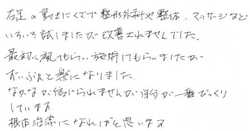 右足の動きにくさで整形外科や整体、マッサージなど
いろいろ試しましたが改善されませんでした。
最初に施してもらい施術してもらいましたが
ずいぶんと楽になりました
なかなか信じられませんが自分が一番びっくり
しています
根本治療になればと思います